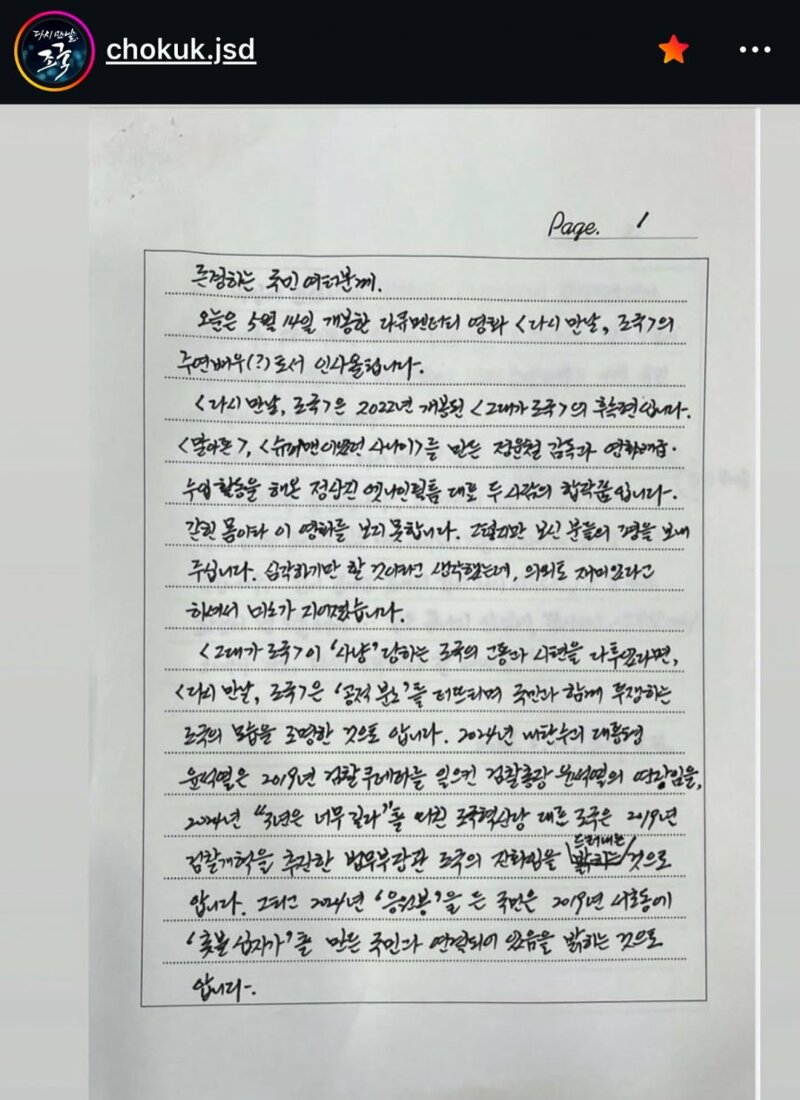 다시 만날,
조국
chokuk.jsd
Page. 1
존경하는 국민 여러분께.
오늘은 5월 14일 개봉한 다큐멘터리 영화 <다시 만날, 조국>의
주연배우(?)로서 인사올립니다.
<다시 만날, 조국>은 2022년 개봉된 <그대가 조국>의 후속편입니다.
<말아톤>, <슈퍼맨이었던 사나이>를 만든 정윤철 감독과 영화배급·
수입 활동을 해온 정상진 엣나인필름 대표 두 사람의 합작품입니다.
갇힌 몸이라 이 영화를 보지 못합니다. 그렇지만 보신 분들의 평을 보내
주십니다. 심각하기만 할 것이라고 생각했는데, 의외로 재미있다고
하셔서 미소가 지어졌습니다.
<그대가 조국>이 '사냥' 당하는 조국의 고통과 시련을 다루었다면,
<다시 만날, 조국>은 '공적 분노'를 터뜨리며 국민과 함께 투쟁하는
조국의 모습을 조명한 것으로 압니다. 2024년 내란수괴 대통령
윤석열은 2019년 검찰 쿠데타를 일으킨 검찰총장 윤석열의 연장임을,
2024년 "3년은 너무 길다"를 외친 조국혁신당 대표 조국은 2019년
검찰개혁을 추진한 법무부장관 조국의 진화임을 밝히는 드러내는 것으로
압니다. 그리고 2024년 '응원봉'을 든 국민은 2019년 서초동에
'촛불 십자가'를 만든 국민과 연결되어 있음을 밝히는 것으로
압니다.